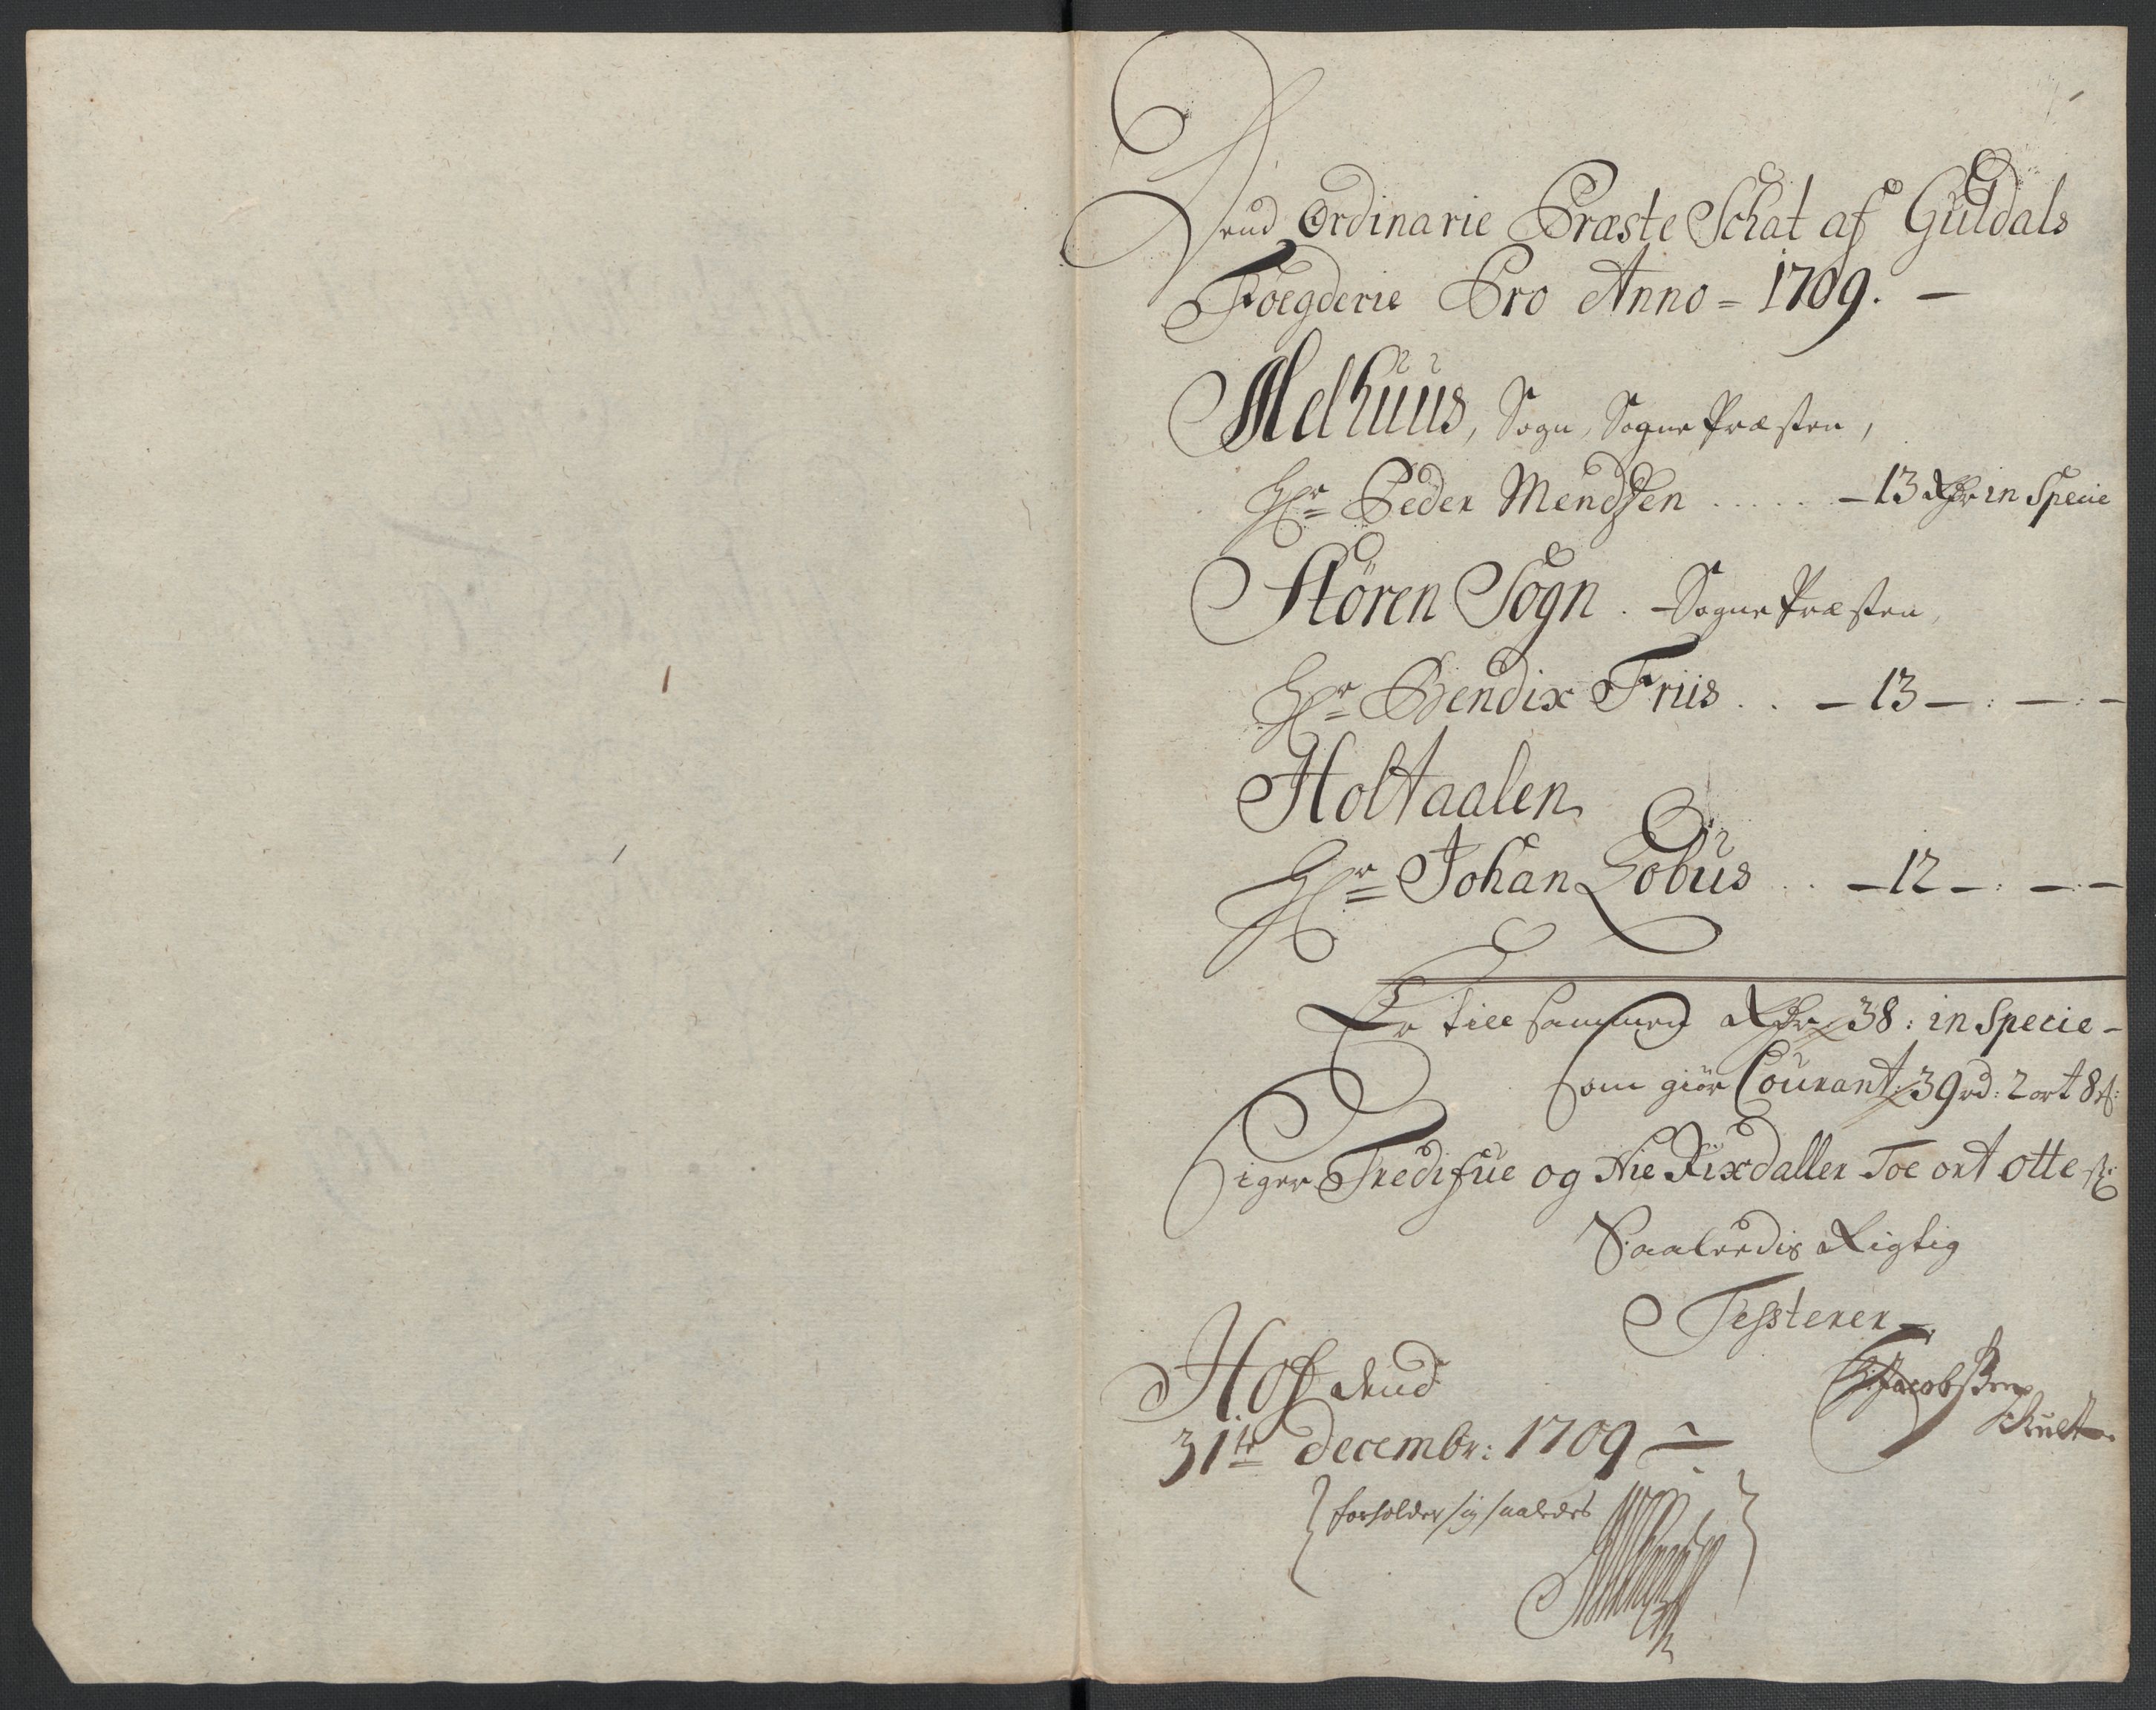 Dend Ordinarie Præste Schat af Guldals
Foegderie Pro Anno = 1709. —
Melhuus, Sogn, Sogne Præsten,
Hr= Peder Mendsen ..... — 13 Rdr in Specie
Stören Sogn. — Sogne Præsten,
Hr= Bendix Friis . . — 13 — : — : —
Holtaalen
Hr= Johan Lobus . . — 12 — : — : —
Er till sammen Rdr 38: in Specie —
som giör Courant: 39 rd: 2 ort 8 s:
Siger Tredisue og Nie Rixdaller Toe ort otte s:
Saaledis Rigtig
Testerer
Hof dend
31te decembr: 1709
forholder sig saaledes